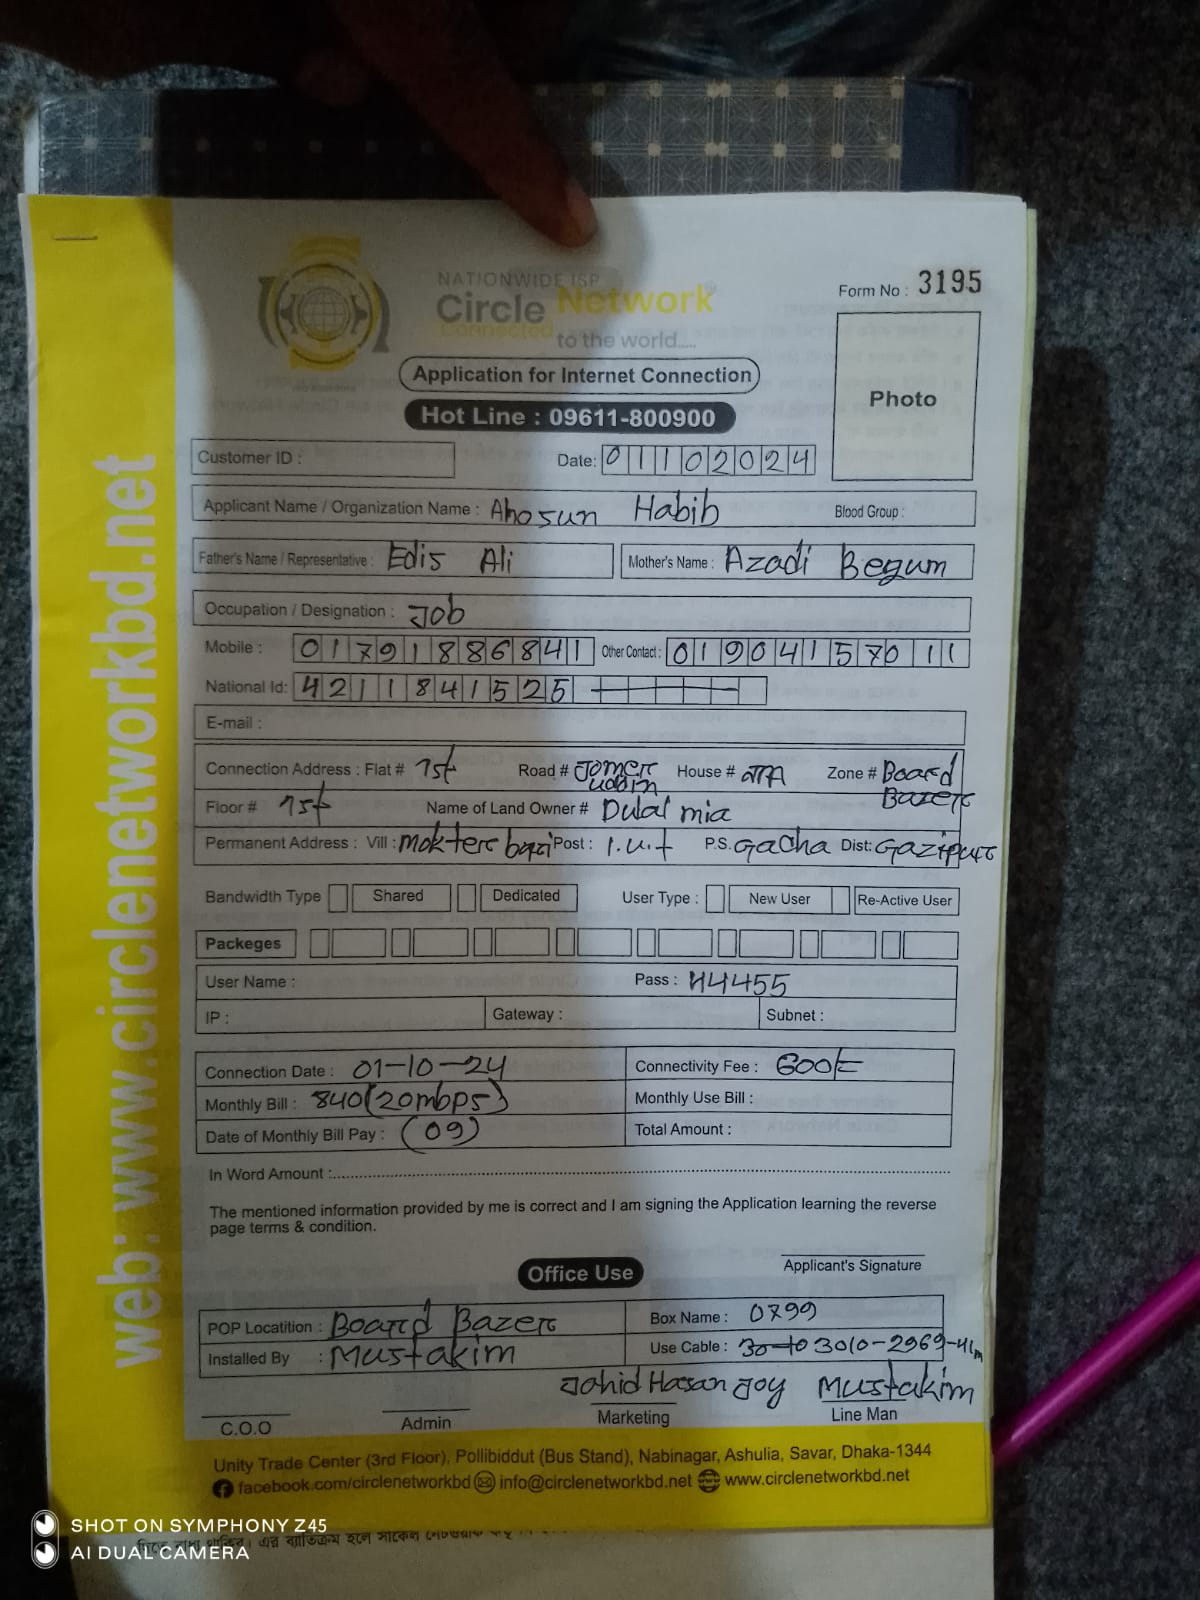 NATIONWIDE ISP
Circle Network
Connected
to the world.....
Form No : 3195
Application for Internet Connection
Photo
Hot Line : 09611-800900
Customer ID :
Date: 01102024
Applicant Name / Organization Name : Ahosun Habib Blood Group :
Father's Name / Representative : Edis Ali Mother's Name : Azadi Begum
Occupation / Designation : Job
Mobile : 01791886841 Other Contact : 01904157011
National Id: 4211841525
E-mail :
Connection Address : Flat # 1st Road # Jomer uddin House # Zone # Board Bazer
Floor # 1st Name of Land Owner # Dulal mia
Permanent Address : Vill : mokter bari Post : I.U.T P.S. Gacha Dist: Gazipur
Bandwidth Type Shared Dedicated User Type : New User Re-Active User
Packeges
User Name : Pass : 44455
IP : Gateway : Subnet :
Connection Date : 01-10-24 Connectivity Fee : 600/=
Monthly Bill : 840(20mbps) Monthly Use Bill :
Date of Monthly Bill Pay : (09) Total Amount :
In Word Amount :
The mentioned information provided by me is correct and I am signing the Application learning the reverse
page terms & condition.
Applicant's Signature
Office Use
POP Locatition : Board Bazer Box Name : 0799
Installed By : Mustakim Use Cable : 3010-2969-41m
Jahid Hasan Joy Mustakim
C.O.O Admin Marketing Line Man
Unity Trade Center (3rd Floor), Pollibiddut (Bus Stand), Nabinagar, Ashulia, Savar, Dhaka-1344
facebook.com/circlenetworkbd info@circlenetworkbd.net www.circlenetworkbd.net
web: www.circlenetworkbd.net
SHOT ON SYMPHONY Z45
AI DUAL CAMERA